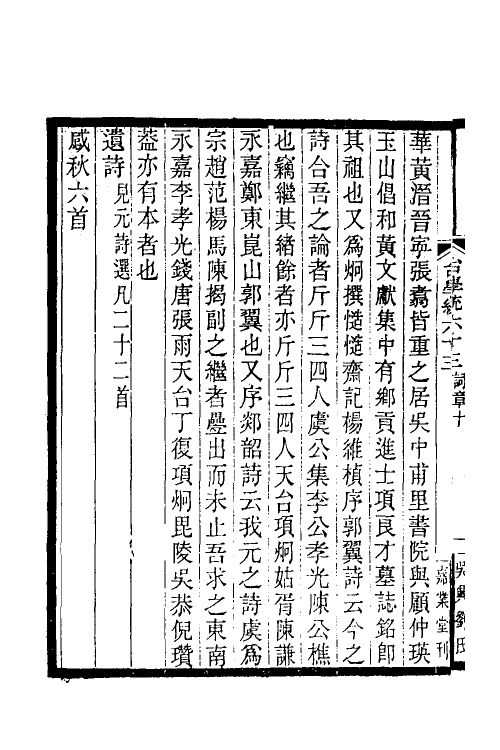 台學統六十三 詞章十
一 吳興劉氏
嘉業堂刊
華黃溍晉寧張翥皆重之居吳中甫里書院與顧仲瑛
玉山倡和黃文獻集中有鄉貢進士項良才墓誌銘卽
其祖也又爲炯撰慥慥齋記楊維楨序郭翼詩云今之
詩合吾之論者斤斤三四人虞公集李公孝光陳公樵
也竊繼其緒餘者亦斤斤三四人天台項炯姑胥陳謙
永嘉鄭東崑山郭翼也又序郯韶詩云我元之詩虞爲
宗趙范楊馬陳揭副之繼者疊出而未止吾求之東南
永嘉李孝光錢唐張雨天台丁復項炯毘陵吳恭倪瓚
葢亦有本者也
遺詩 見元詩選凡二十二首
感秋六首